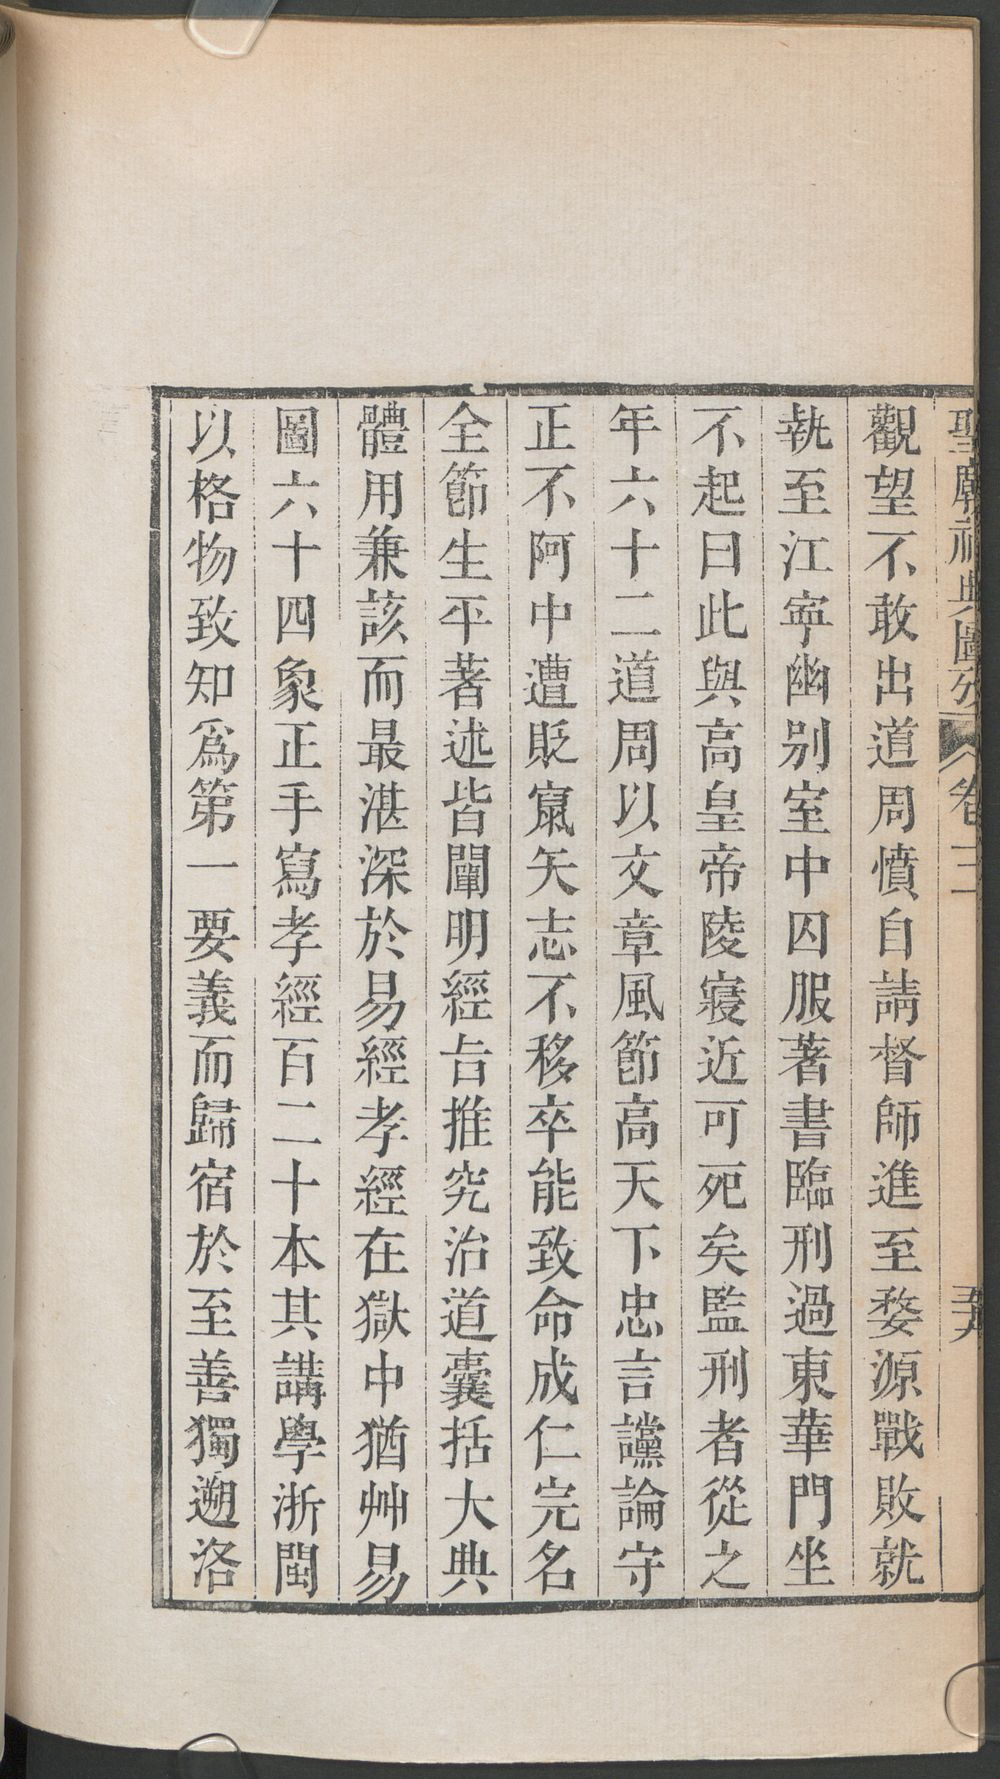 聖廟祀典圖攷 卷三 五九
觀望不敢出道周憤自請督師進至婺源戰敗就
執至江寜幽别室中囚服著書臨刑過東華門坐
不起曰此與高皇帝陵寢近可死矣監刑者從之
年六十二道周以文章風節高天下忠言讜論守
正不阿中遭貶竄矢志不移卒能致命成仁完名
全節生平著述皆闡明經旨推究治道囊括大典
體用兼該而最湛深於易經孝經在獄中猶艸易
圖六十四象正手寫孝經百二十本其講學浙閩
以格物致知爲第一要義而歸宿於至善獨遡洛